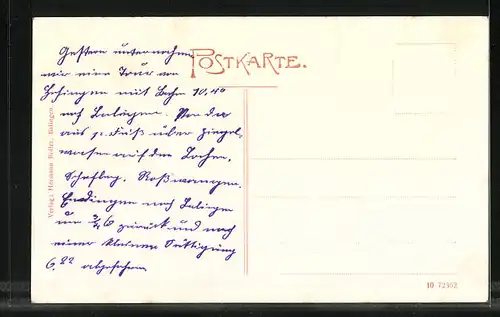 Gestern unternahmen
wir eine Tour von
Hechingen mit Bahn 10.40
nach Balingen. Von da
aus p. Fuß über Ziegel-
wasen auf den Lochen,
Schafberg, Roßwangen,
Endingen nach Balingen
um 3/4 6 zurück und nach
einer kleinen Stärkung
6.22 abgefahren
POSTKARTE.
Verlag: Hermann Roller, Balingen.
10 72352